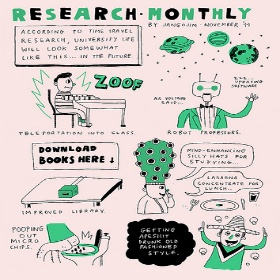 RESEARCH·MONTHLY
BY JANGOJIM · NOVEMBER '11
ACCORDING TO TIME TRAVEL
RESEARCH, UNIVERSITY LIFE
WILL LOOK SOMEWHAT
LIKE THIS... IN THE FUTURE
ZOOF
AS VOLTAIRE
SAID...
OPERATING
SOFTWARE
TELEPORTATION INTO CLASS.
ROBOT PROFESSORS.
DOWNLOAD
BOOKS HERE ↓
IMPROVED LIBRARY.
MIND-ENHANCING
SILLY HATS FOR
STUDYING...
LASAGNA
CONCENTRATE FOR
LUNCH...
POOPING
OUT
MICRO
CHIPS.
GETTING
APESHIT
DRUNK OLD
FASHIONED
STYLE.